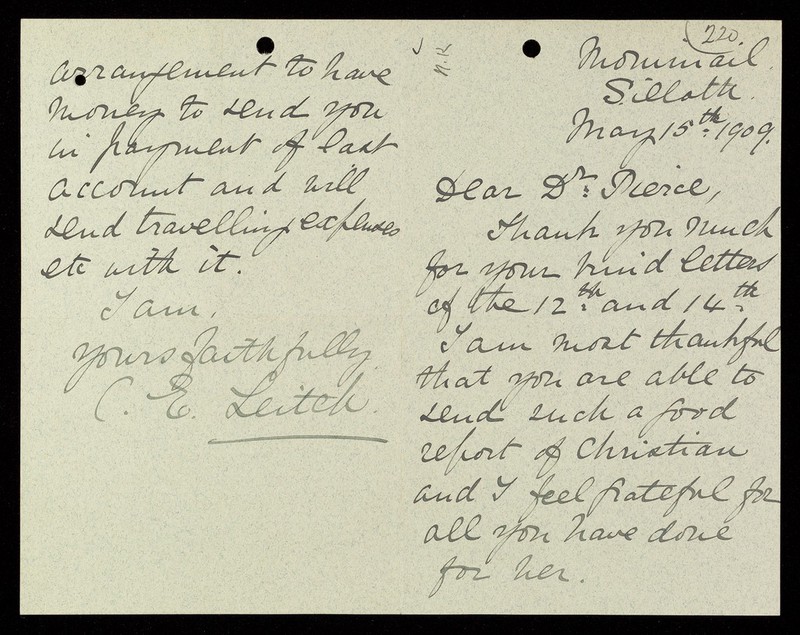 220.
N.K
Mornmail.
Silloth.
May 15th. 1909.
Dear Dr. Pierce,
Thank you much
for your kind letters
of the 12th. and 14th.
I am most thankful
that you are able to
send such a good
report of Christian
and I feel grateful for
all you have done
for her.
arrangement to have
money to send you
in payment of last
account and will
send travelling expenses
etc with it.
I am,
yours faithfully
C. E. Leitch.